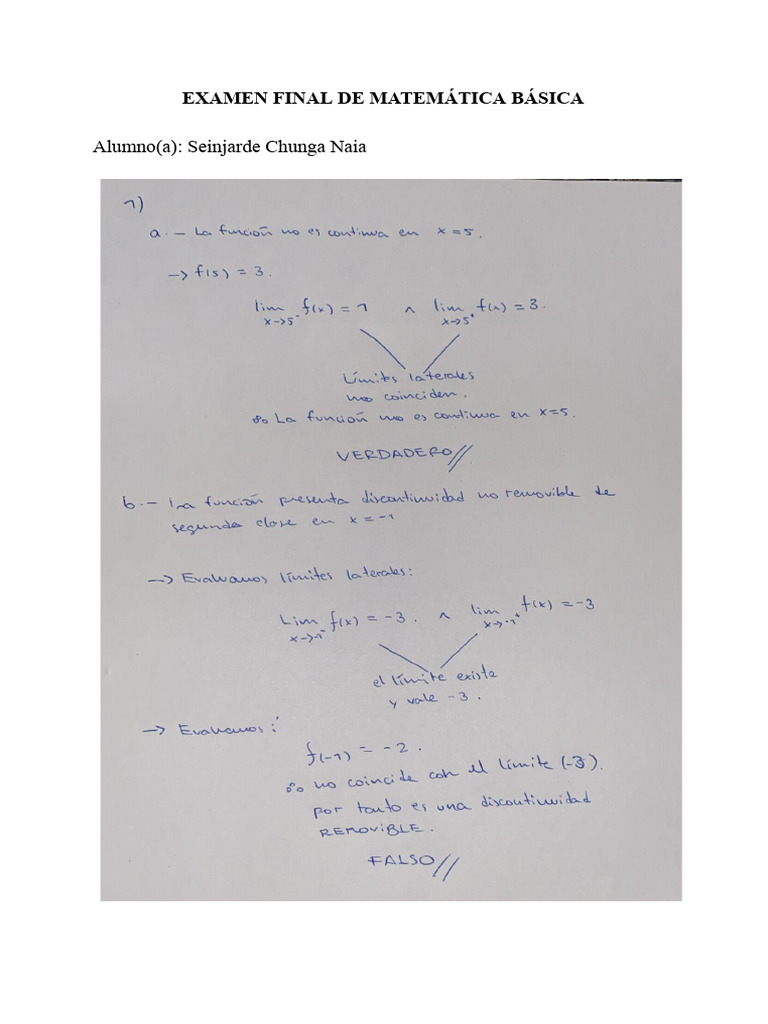 EXAMEN FINAL DE MATEMÁTICA BÁSICA
Alumno(a): Seinjarde Chunga Naia
1)
a.- La función no es continua en x=5.
→ f(5) = 3.
lim f(x) = 1 ∧ lim f(x) = 3.
x→5⁻ x→5⁺
Límites laterales
no coinciden.
∴ La función no es continua en x=5.
VERDADERO//
b.- La función presenta discontinuidad no removible de
segunda clase en x=-1
→ Evaluamos límites laterales:
Lim f(x) = -3. ∧ lim f(x) = -3
x→-1⁻ x→-1⁺
el límite existe
y vale -3.
→ Evaluamos:
f(-1) = -2.
∴ no coincide con el límite (-3).
por tanto es una discontinuidad
REMOVIBLE.
FALSO//